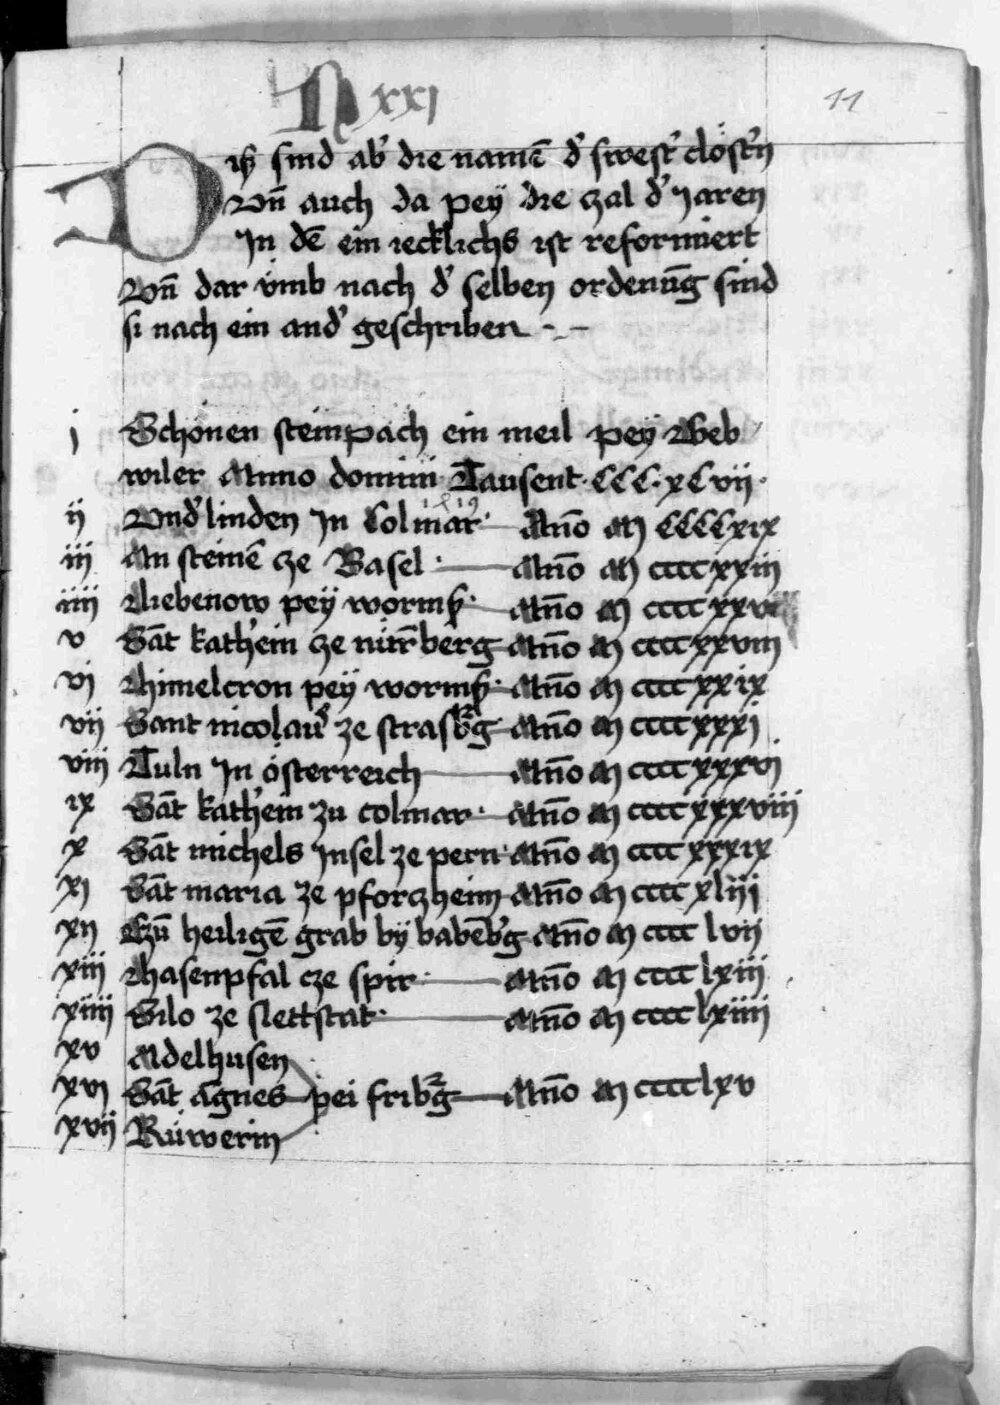 N xxi
11
Diß sind ab' die namē d' swest' clöst'n
Vn̄ auch da peÿ die czal d' Jaren
Jn dē ein iecklichs ist reformiert
Vn̄ dar vmb nach d' selben ordenūg sind
si nach ein and' geschriben
j Schönen steinpach ein meil peÿ Geb
wiler Anno domini Tausent · CCC · xCvij ·
ij Vnd' linden Jn Colmar · Añо M CCCCxix
iij An steinē cze Basel · Añо M ccccxxiij
iiij Liebenow peÿ wormß · Añо M ccccxxvi
v Sāt kath'ein cze nür̄berg Añо M ccccxxviij
vj Himelcron peÿ wormß · Añо M ccccxxix
vij Sant nicolaus ze strasb'g Añо M ccccxxxj
viij Tuln Jn österreich Añо M ccccxxxvj
ix Sāt kath'ein zu colmar · Añо M ccccxxxviij
x Sāt michels Jnsel ze pern · Añо M ccccxxxix
xj Sāt maria ze pforczheim Añо M cccc xliij
xij Czū heiligē grab bÿ babēb'g Añо M cccc lvij
xiij Hasenpfal cze spir · Añо M cccc lxiij
xiiij Silo ze slettstat · Añо M cccclxiiij
xv Adelhusen
xvj Sāt Agnes pei frib'g Añо M cccclxv
xvij Rüwerin